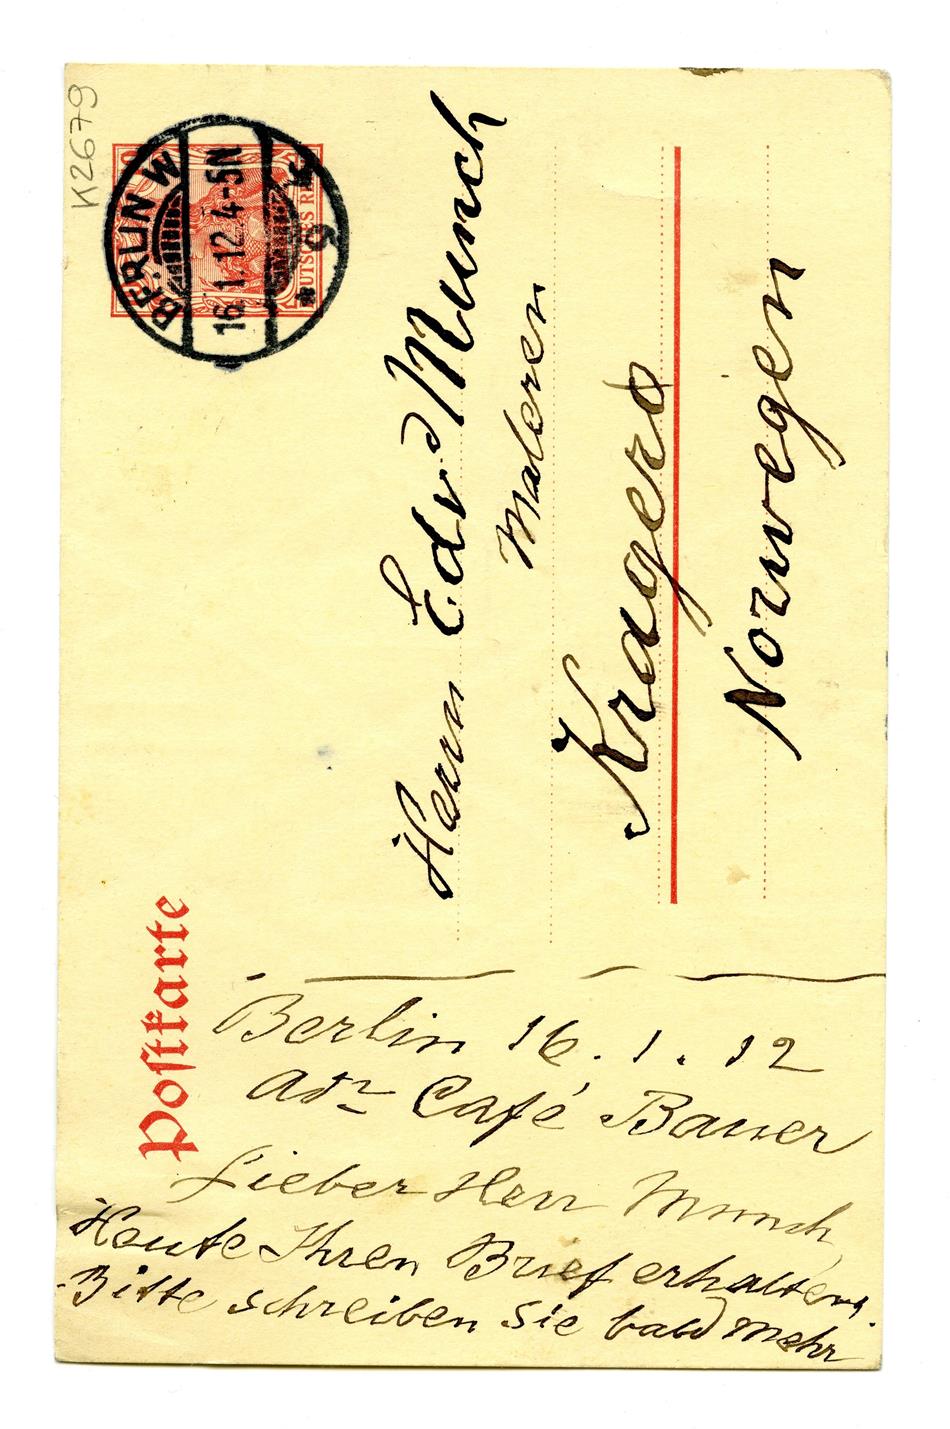 K2679
BERLIN W
16.1.12.4-5N
* 9 *
DEUTSCHES REICH
Postkarte
Herrn Edv Munch
Maleren
Kragerø
Norwegen
Berlin 16.1.12
Adr Café Bauer
Lieber Herr Munch
Heute Ihren Brief erhalten.
Bitte schreiben Sie bald mehr